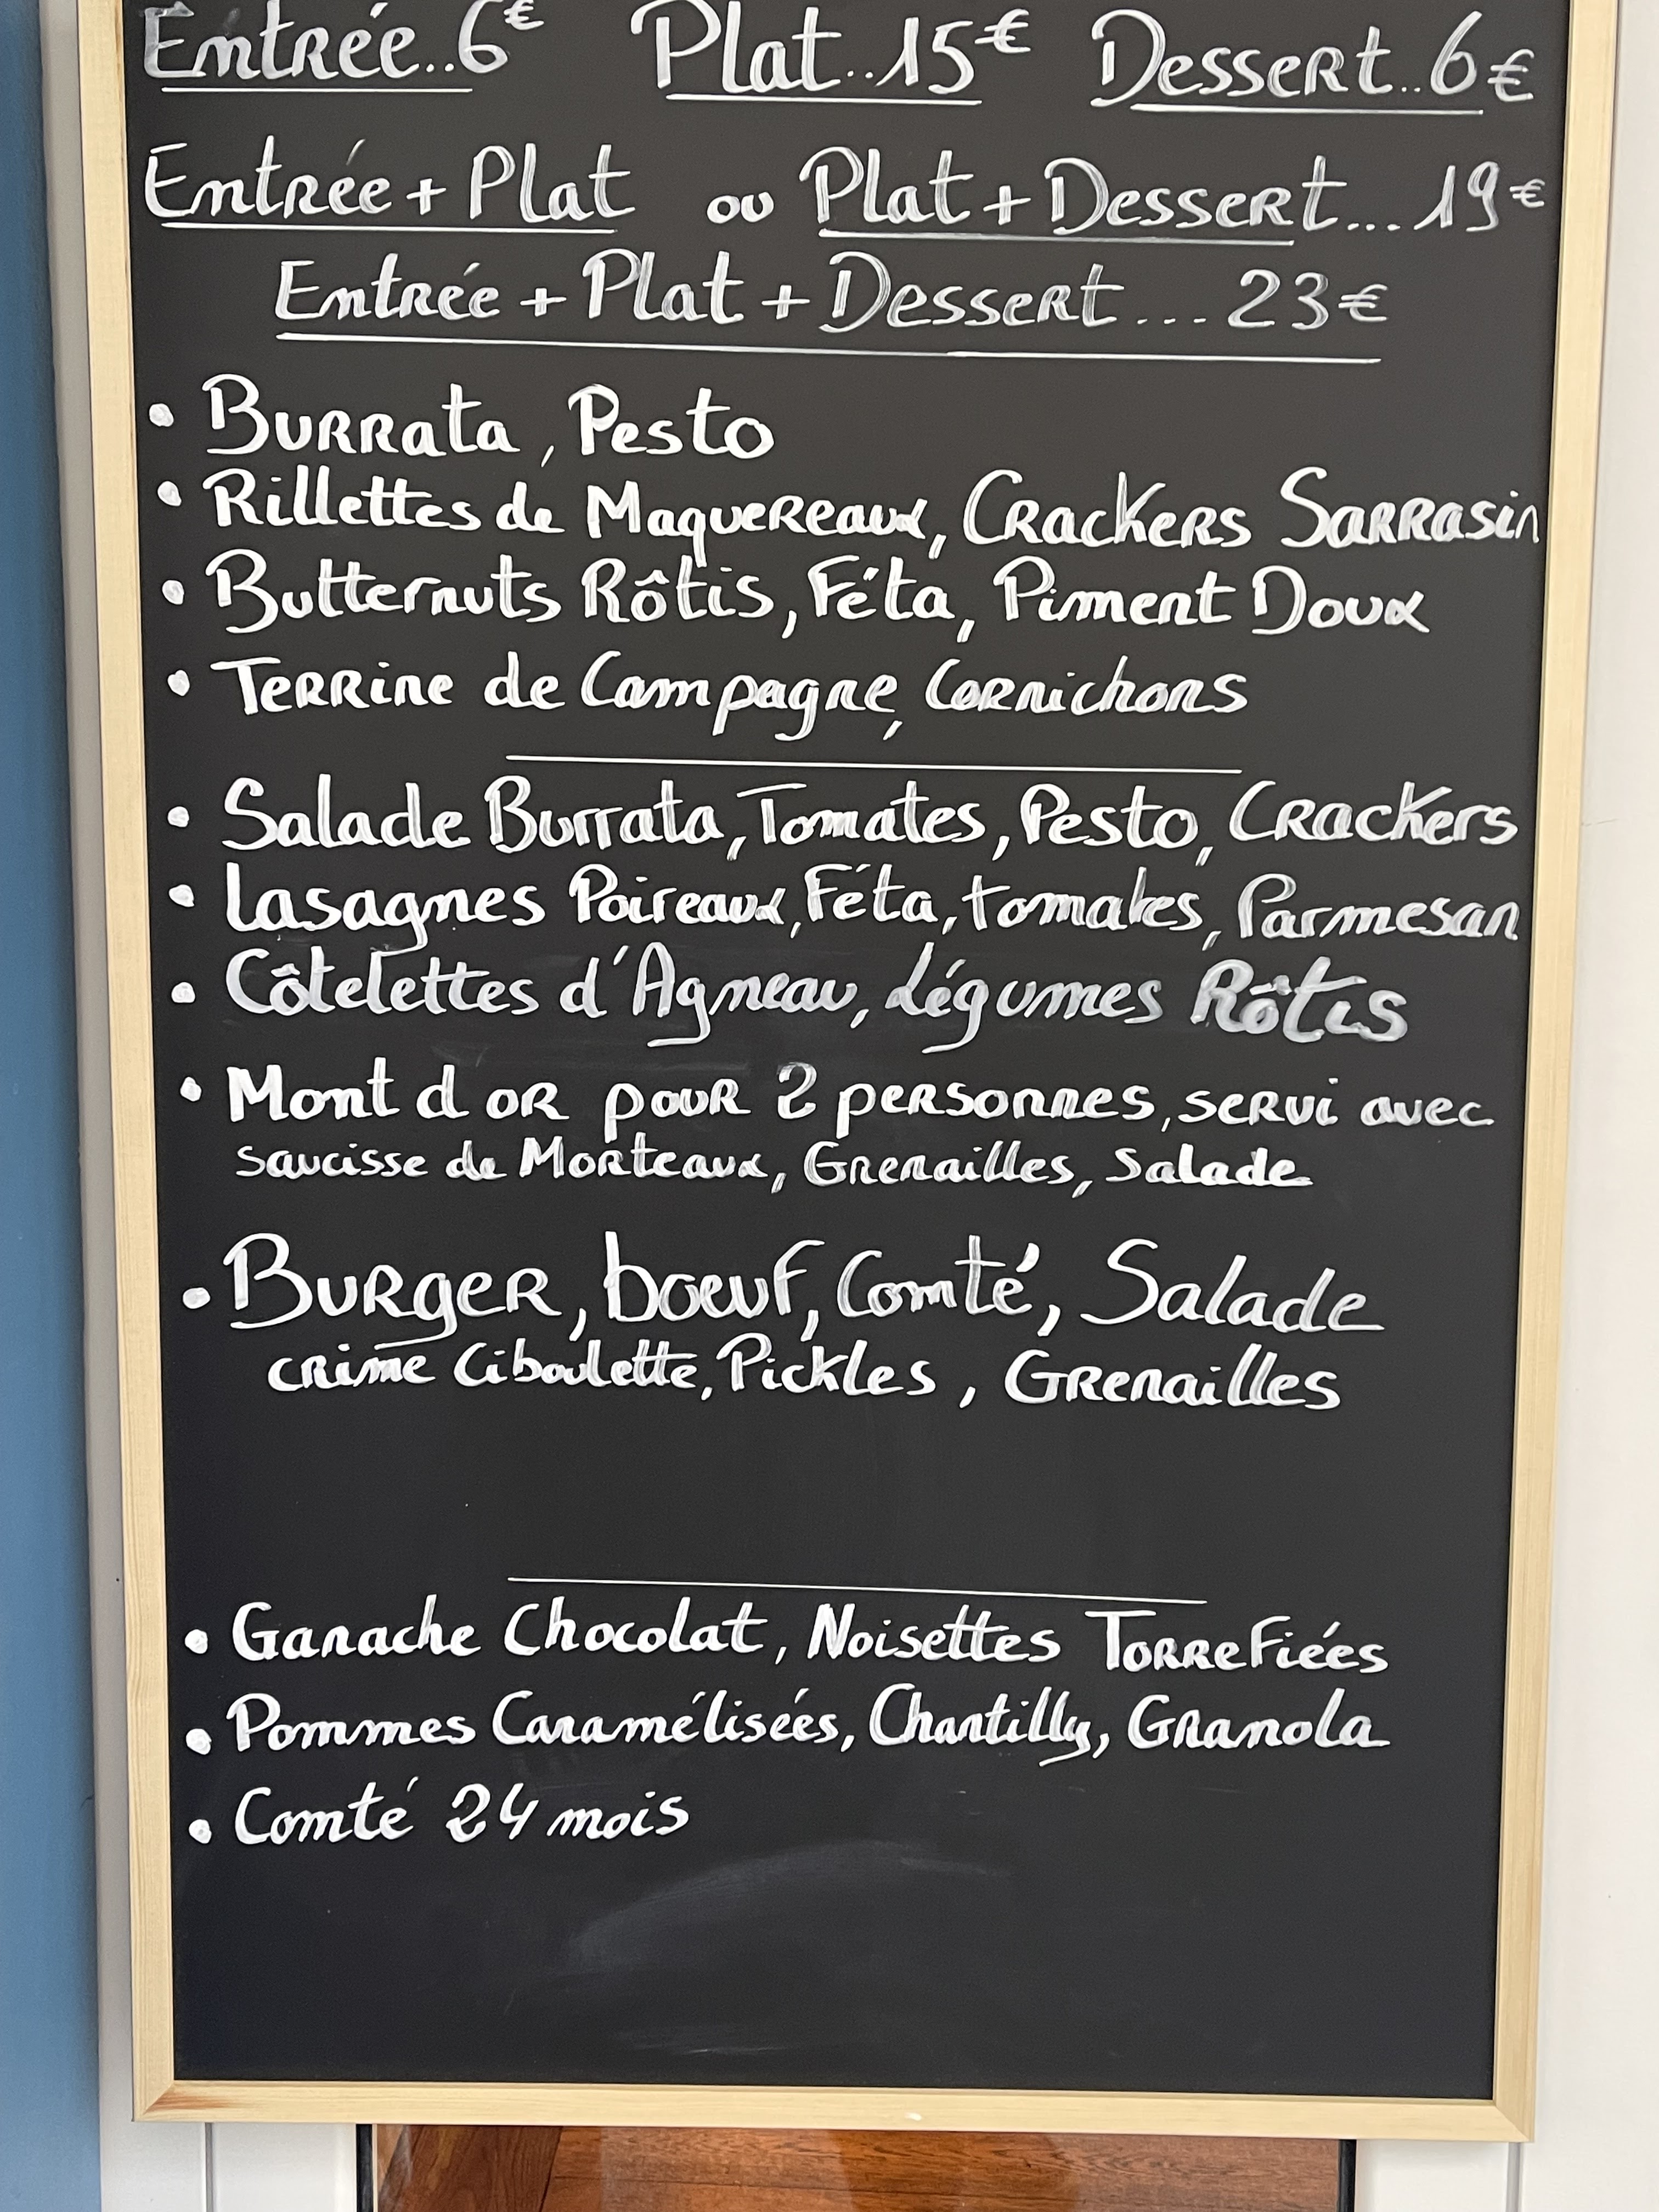 Entrée..6€ Plat..15€ Dessert..6€
Entrée + Plat ou Plat + Dessert...19€
Entrée + Plat + Dessert...23€
• Burrata, Pesto
• Rillettes de Maquereaux, Crackers Sarrasin
• Butternuts Rôtis, Féta, Piment Doux
• Terrine de Campagne, Cornichons
• Salade Burrata, Tomates, Pesto, Crackers
• Lasagnes Poireaux, Féta, tomates, Parmesan
• Côtelettes d'Agneau, Légumes Rôtis
• Mont d or pour 2 personnes, servi avec
saucisse de Morteaux, Grenailles, Salade
• Burger, boeuf, Comté, Salade
crème Ciboulette, Pickles, Grenailles
• Ganache Chocolat, Noisettes Torrefiées
• Pommes Caramélisées, Chantilly, Granola
• Comté 24 mois